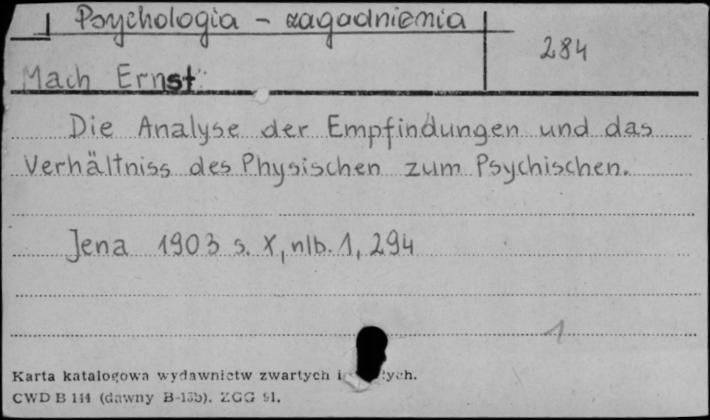 Psychologia - zagadnienia
284
Mach Ernst
Die Analyse der Empfindungen und das
Verhältniss des Physischen zum Psychischen.
Jena 1903 s. X, nlb. 1, 294
1
Karta katalogowa wydawnictw zwartych i
CWD B 144 (dawny B-13b). ZGG 81.